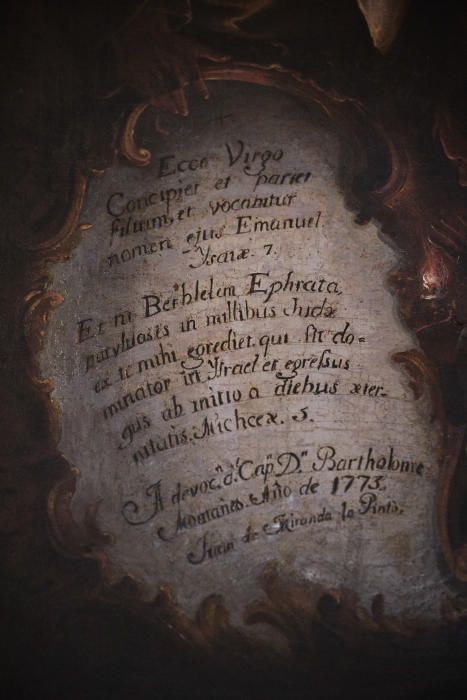 Ecce Virgo
Concipiet et pariet
filium, et vocabitur
nomen ejus Emanuel.
Ysaiæ. 7.
Et tu Bethlelem Ephrata,
parvulus es in millibus Juda
ex te mihi egrediet. qui sit do=
minator in Ysrael et egressus
ejus ab initio a diebus æter-
nitatis. Micheæ. 5.
A devoc.n d.l Cap.n D.n Bartholome
Montanes. Año de 1773.
Juan de Miranda lo Pinto.